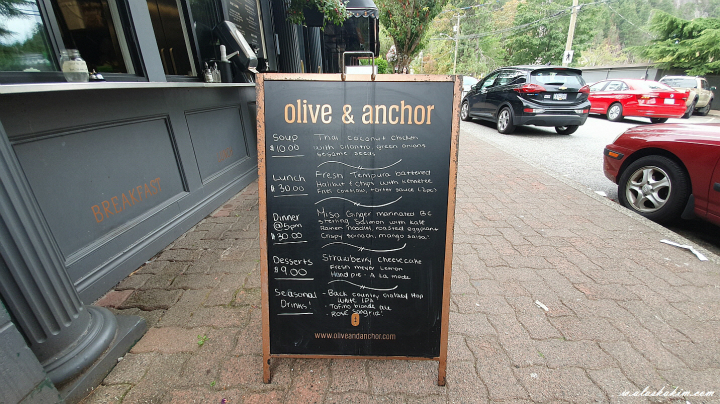 olive & anchor
Soup
$10.00
Thai coconut chicken
with cilantro, green onions
sesame seeds
Lunch
$30.00
Fresh Tempura battered
Halibut & chips with
fries, coleslaw, tarter sauce (2pc's)
Dinner
@5pm
$30.00
Miso Ginger marinated BC
Sterling Salmon with kale
Ramen noodles, roasted eggplant
Crispy spinach, mango salsa
Desserts
$9.00
Strawberry cheesecake
Fresh Meyer Lemon
Hand pie - A la mode
Seasonal
Drinks!
- Back country, Hop
IPA
- Tofino blonde ale
- Rosé Sangria
www.oliveandanchor.com
BREAKFAST